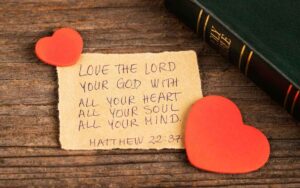 LOVE THE LORD
YOUR GOD WITH
ALL YOUR HEART
ALL YOUR SOUL
ALL YOUR MIND.
MATTHEW 22:37